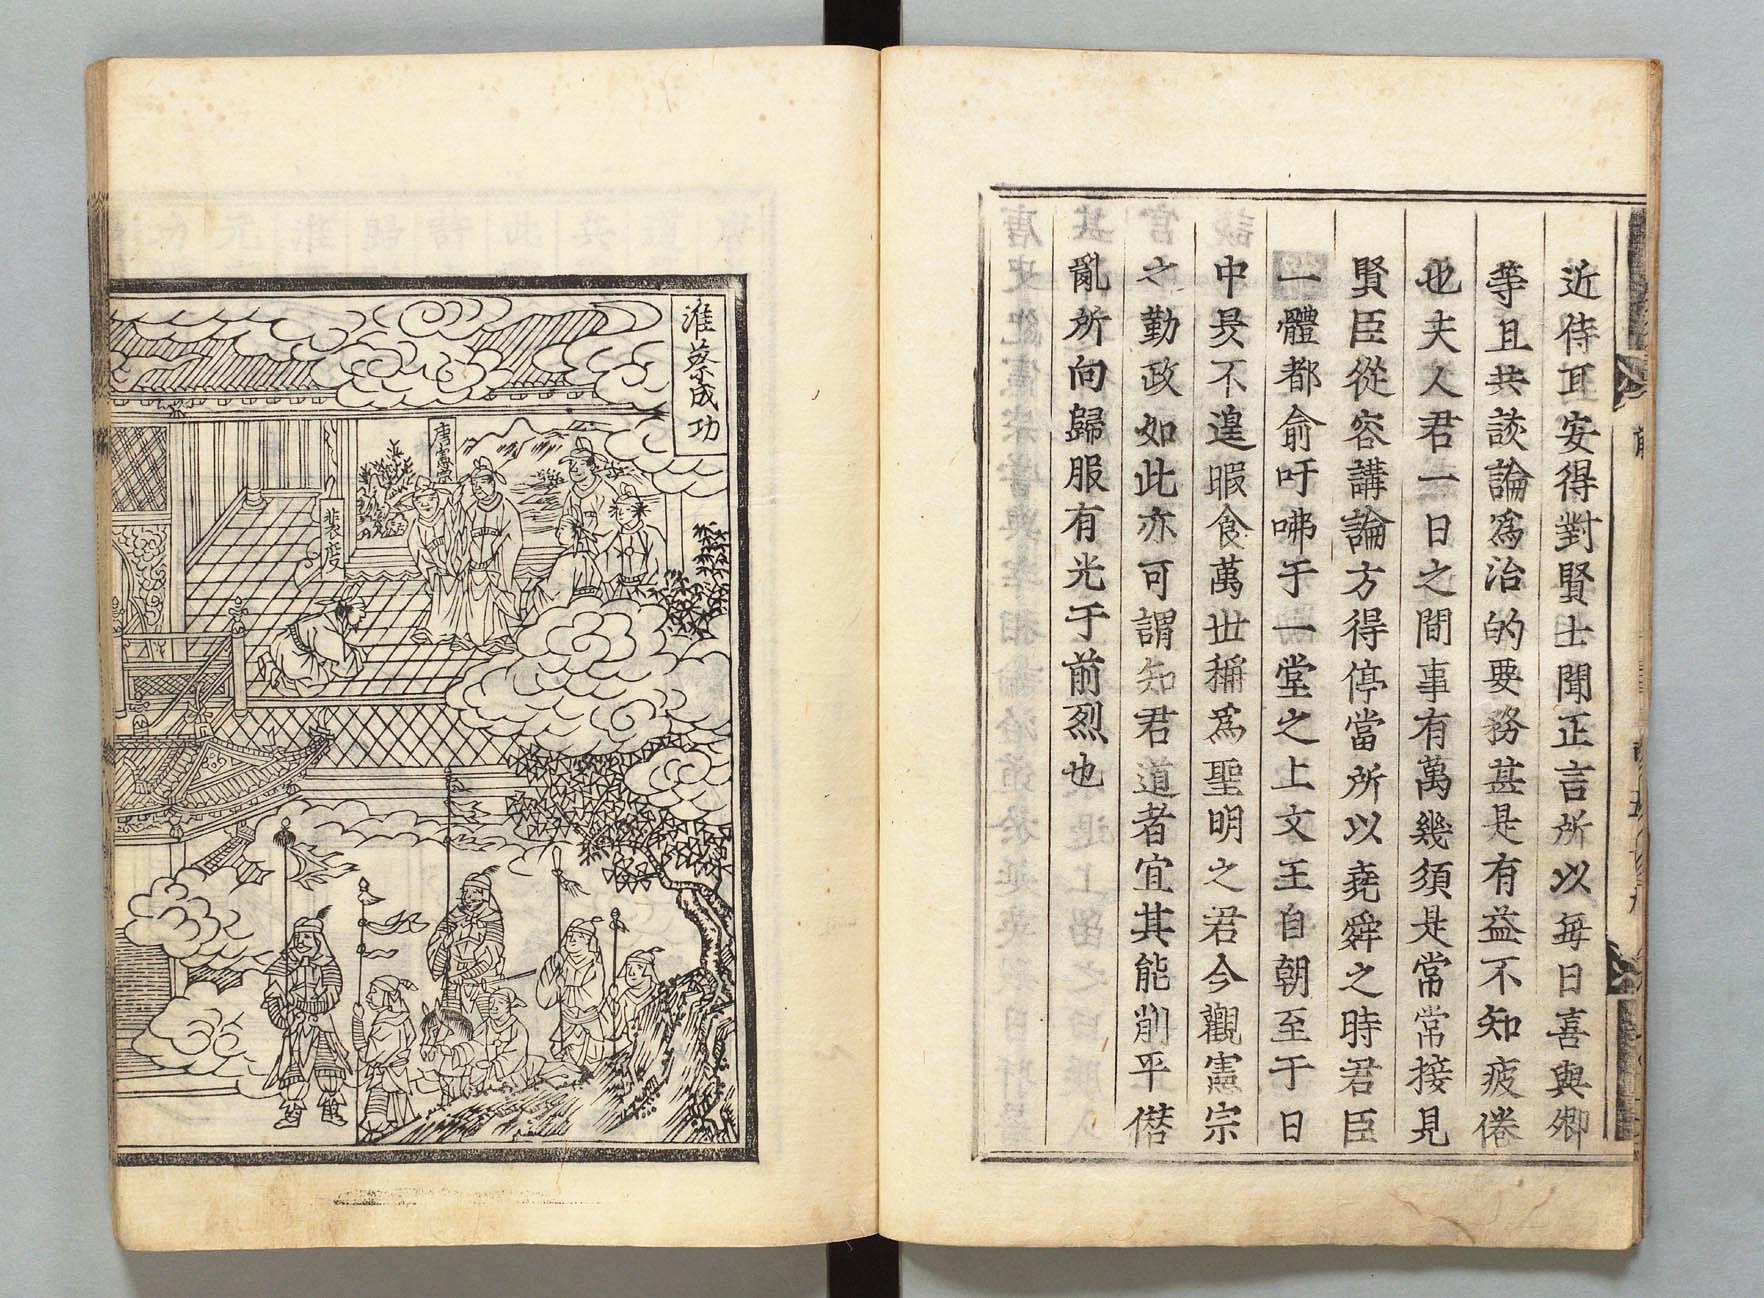 近侍耳安得對賢士聞正言所以每日喜與卿
等且共談論爲治的要務甚是有益不知疲倦
也夫人君一日之間事有萬幾須是常常接見
賢臣從容講論方得停當所以堯舜之時君臣
一體都俞吁咈于一堂之上文王自朝至于日
中昃不遑暇食萬世稱爲聖明之君今觀憲宗
之勤政如此亦可謂知君道者宜其能削平僭
亂所向歸服有光于前烈也
淮蔡成功
唐憲宗
裴度